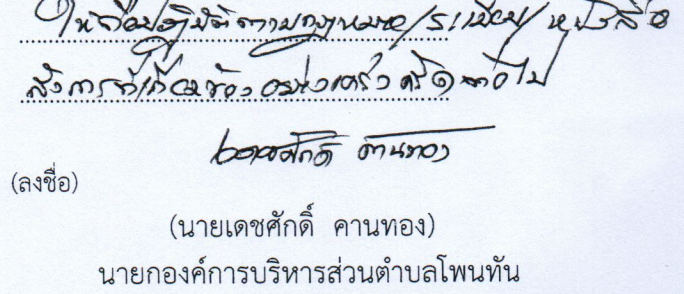 ให้ถือปฏิบัติตามกฎหมาย/ระเบียบ/หนังสือ
สั่งการที่เกี่ยวข้องอย่างเคร่งครัดต่อไป
เดชศักดิ์ คานทอง
(ลงชื่อ)
(นายเดชศักดิ์ คานทอง)
นายกองค์การบริหารส่วนตำบลโพนทัน